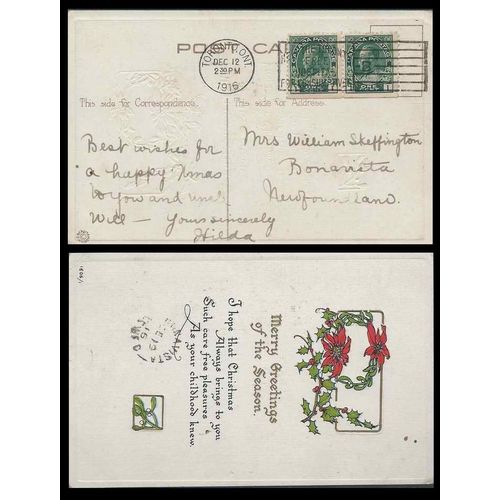 POST CARD
TORONTO, ONT.
DEC 12
2 30 PM
1916
This side for Correspondence.
This side for Address.
Best wishes for
a happy Xmas
to You and uncle
Will — Yours sincerely
Hilda
Mrs William Skeffington
Bonavista
Newfoundland.
Merry Greetings
of the Season.
I hope that Christmas
Always brings to you
Such care free pleasures
As your childhood knew.